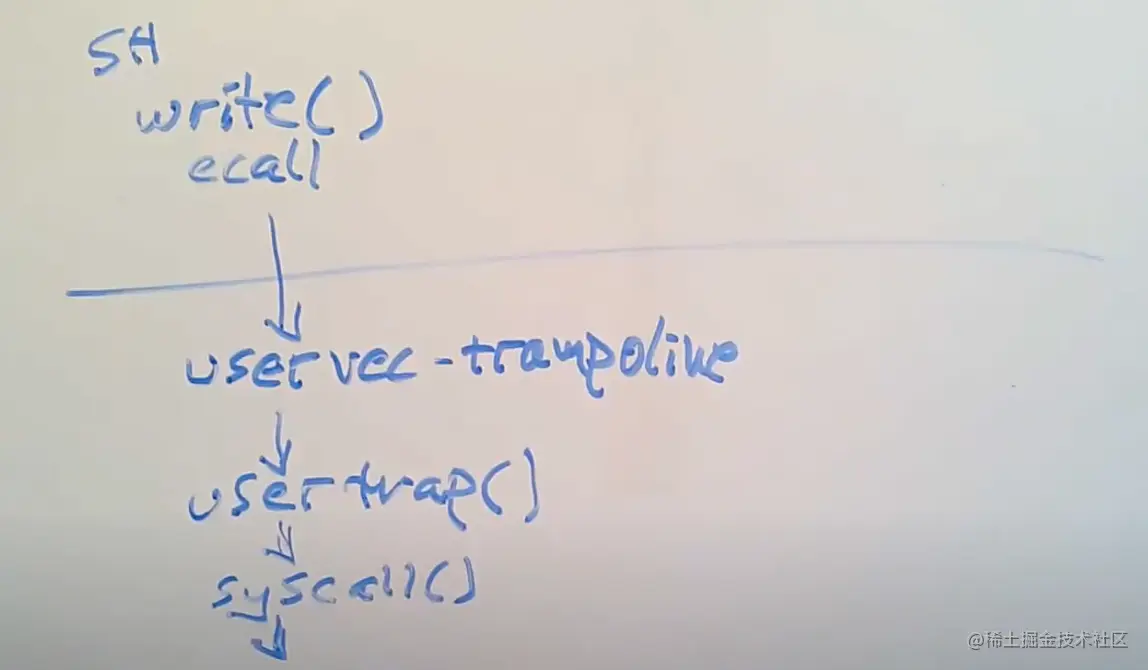 SH
write()
ecall
uservec-trampoline
usertrap()
syscall()
@稀土掘金技术社区